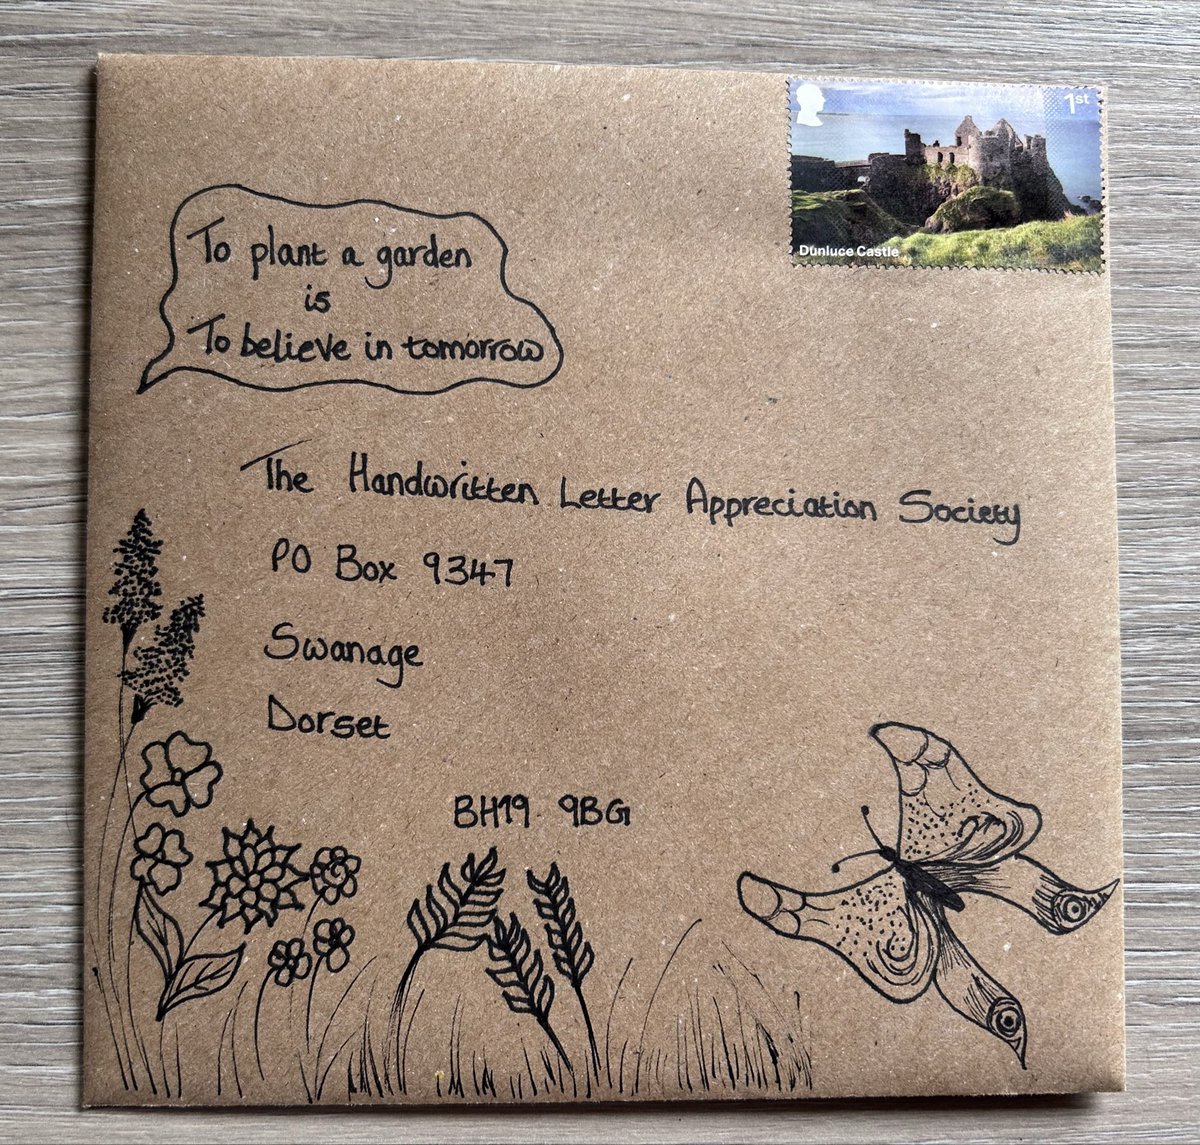 1st
Dunluce Castle
To plant a garden
is
To believe in tomorrow
The Handwritten Letter Appreciation Society
PO Box 9347
Swanage
Dorset
BH19 9BG